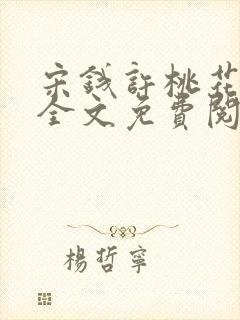 宋錢許桃花
全文免費閱
楊哲寧